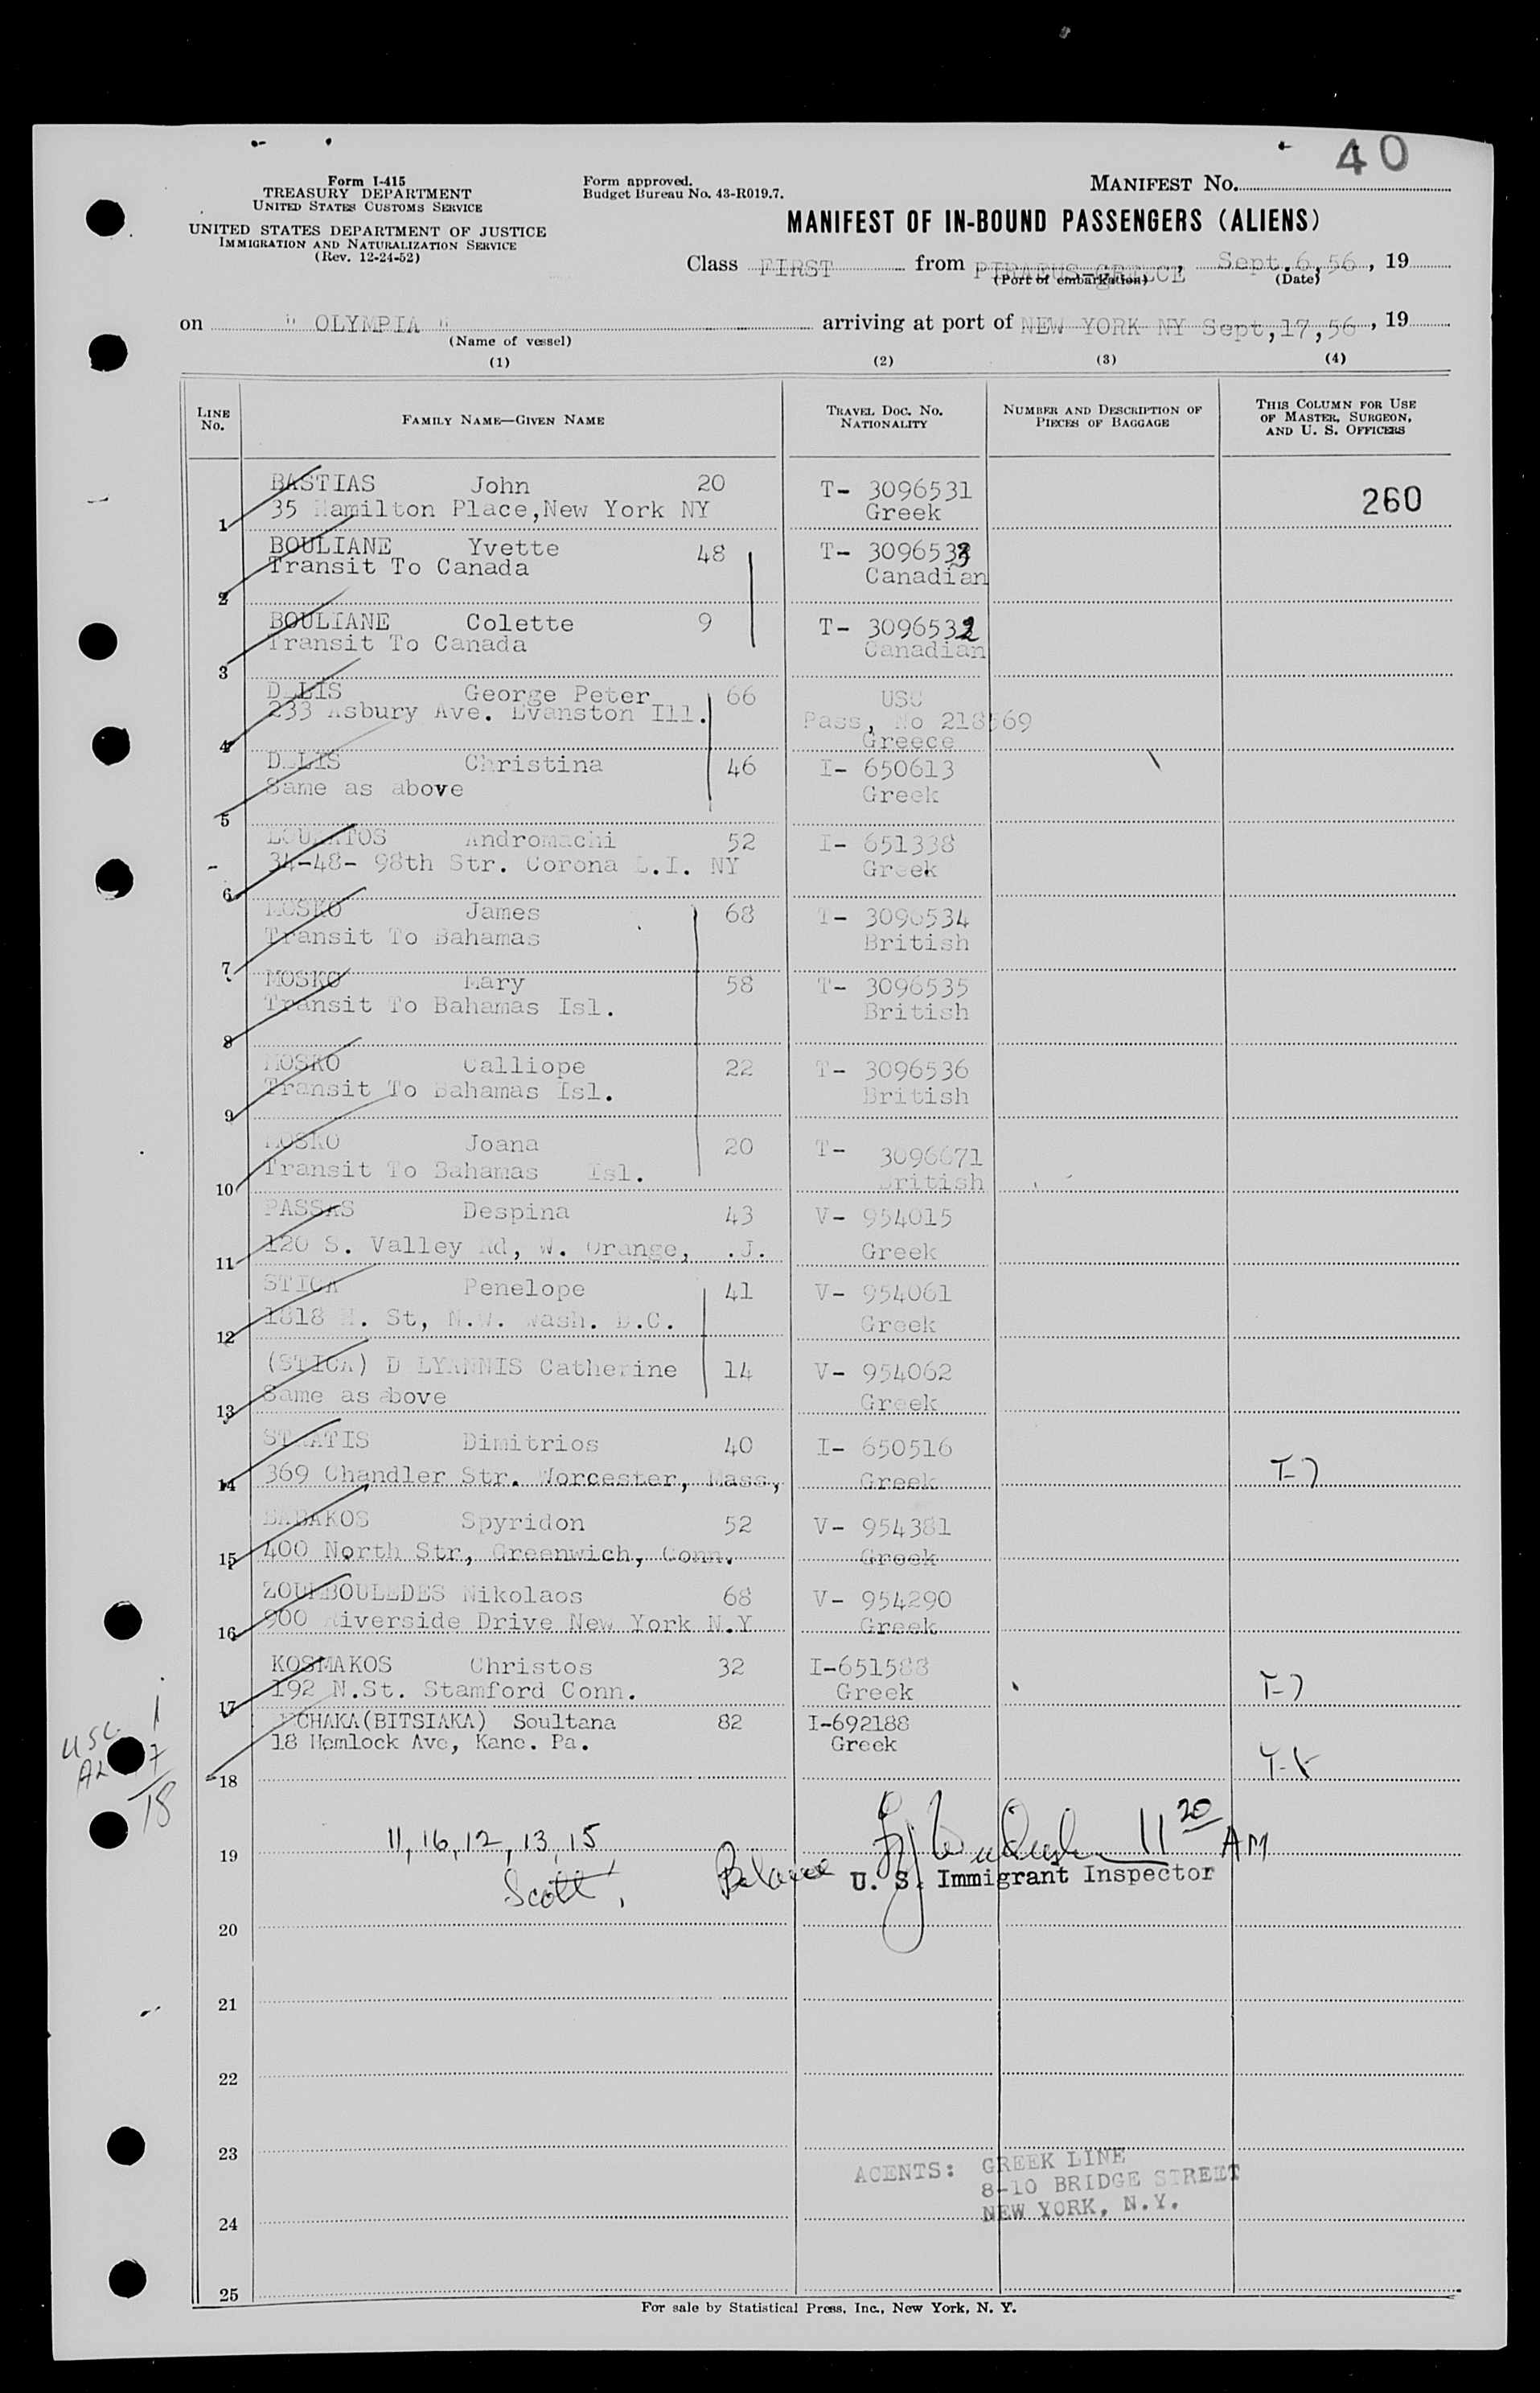 40
Form I-415
TREASURY DEPARTMENT
UNITED STATES CUSTOMS SERVICE
UNITED STATES DEPARTMENT OF JUSTICE
IMMIGRATION AND NATURALIZATION SERVICE
(Rev. 12-24-52)
Form approved.
Budget Bureau No. 43-R019.7.
MANIFEST No.
MANIFEST OF IN-BOUND PASSENGERS (ALIENS)
Class FIRST from PIRAEUS-GREECE, Sept.6,56, 19
(Port of embarkation) (Date)
on " OLYMPIA " arriving at port of NEW YORK NY Sept,17,56, 19
(Name of vessel)
(1) (2) (3) (4)
LINE No. FAMILY NAME—GIVEN NAME TRAVEL DOC. NO. NATIONALITY NUMBER AND DESCRIPTION OF PIECES OF BAGGAGE THIS COLUMN FOR USE OF MASTER, SURGEON, AND U. S. OFFICERS
BASTIAS John 20 T- 3096531 260
1 35 Hamilton Place,New York NY Greek
BOULIANE Yvette 48 T- 3096533
2 Transit To Canada Canadian
BOULIANE Colette 9 T- 3096532
3 Transit To Canada Canadian
D LIS George Peter 66 USC
233 Asbury Ave. Evanston Ill. Pass, No 218569
4 Greece
D LIS Christina 46 I- 650613
5 Same as above Greek
Andromachi 52 I- 651338
6 34-48- 98th Str. Corona L.I. NY Greek
MOSKO James 68 T- 3096534
7 Transit To Bahamas British
MOSKO Mary 58 T- 3096535
8 Transit To Bahamas Isl. British
MOSKO Calliope 22 T- 3096536
9 Transit To Bahamas Isl. British
MOSKO Joana 20 T- 3096671
10 Transit To Bahamas Isl. British
PASSAS Despina 43 V- 954015
11 120 S. Valley Rd, W. Orange, .J. Greek
STICA Penelope 41 V- 954061
12 1818 . St, N.W. Wash. D.C. Greek
(STICA) D LYANNIS Catherine 14 V- 954062
13 Same as above Greek
STRATIS Dimitrios 40 I- 650516
14 369 Chandler Str. Worcester, Mass, Greek T-7
Spyridon 52 V- 954381
15 400 North Str, Greenwich, Conn. Greek
Nikolaos 68 V- 954290
16 900 Riverside Drive New York N.Y Greek
KOSMAKOS Christos 32 I-651588
17 192 N.St. Stamford Conn. Greek T-7
(BITSIAKA) Soultana 82 I-692188
18 18 Hemlock Ave, Kane. Pa. Greek
USC 1
18
19 11, 16, 12, 13, 15 11 20 AM
Scott, Balance U. S. Immigrant Inspector
20
21
22
23
AGENTS: GREEK LINE
8-10 BRIDGE STREET
NEW YORK, N.Y.
24
25
For sale by Statistical Press, Inc., New York, N. Y.